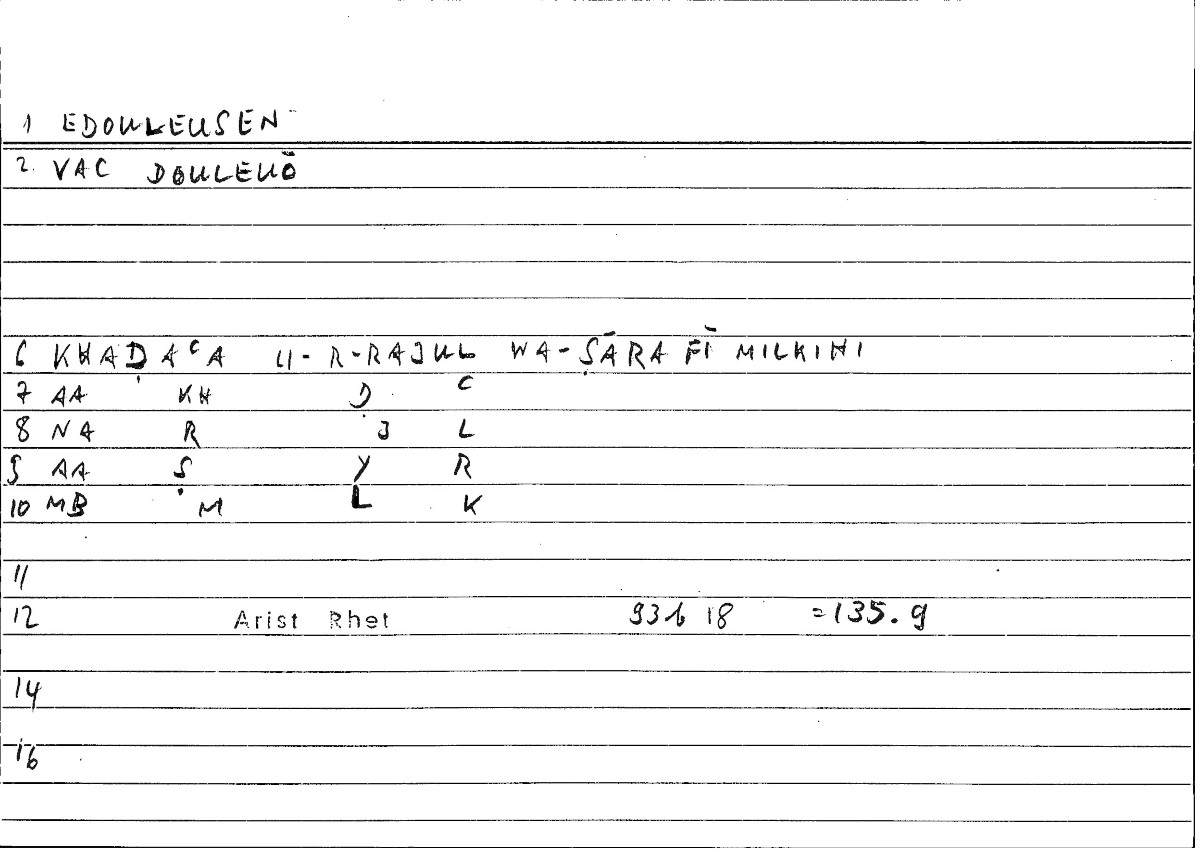 1 EDOULEUSEN
2. VAC DOULEUŌ
6 KHAḌAᶜA LI-R-RAJUL WA-ṢĀRA FĪ MILKIHI
7 AA KH Ḍ C
8 NA R J L
9 AA Ṣ Y R
10 MB M L K
11
12 Arist Rhet 93b 18 =135.9
14
16